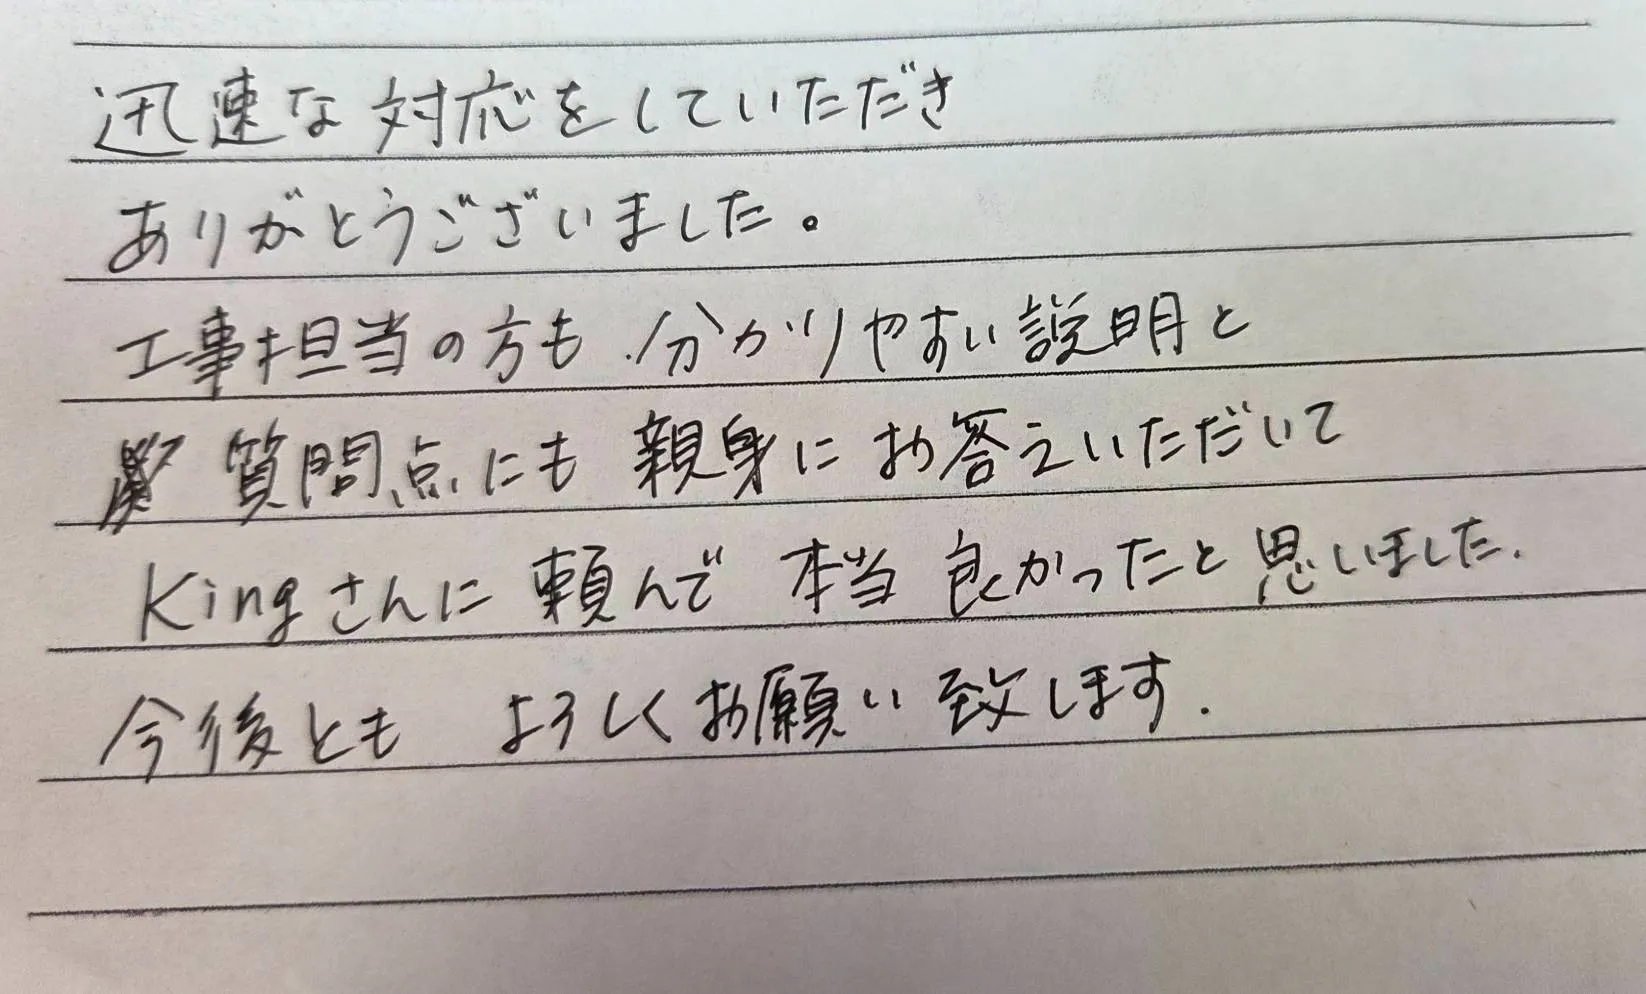 迅速な対応をしていただき
ありがとうございました。
工事担当の方も分かりやすい説明と
質問点にも親身にお答えいただいて
Kingさんに頼んで本当良かったと思いました.
今後ともよろしくお願い致します.